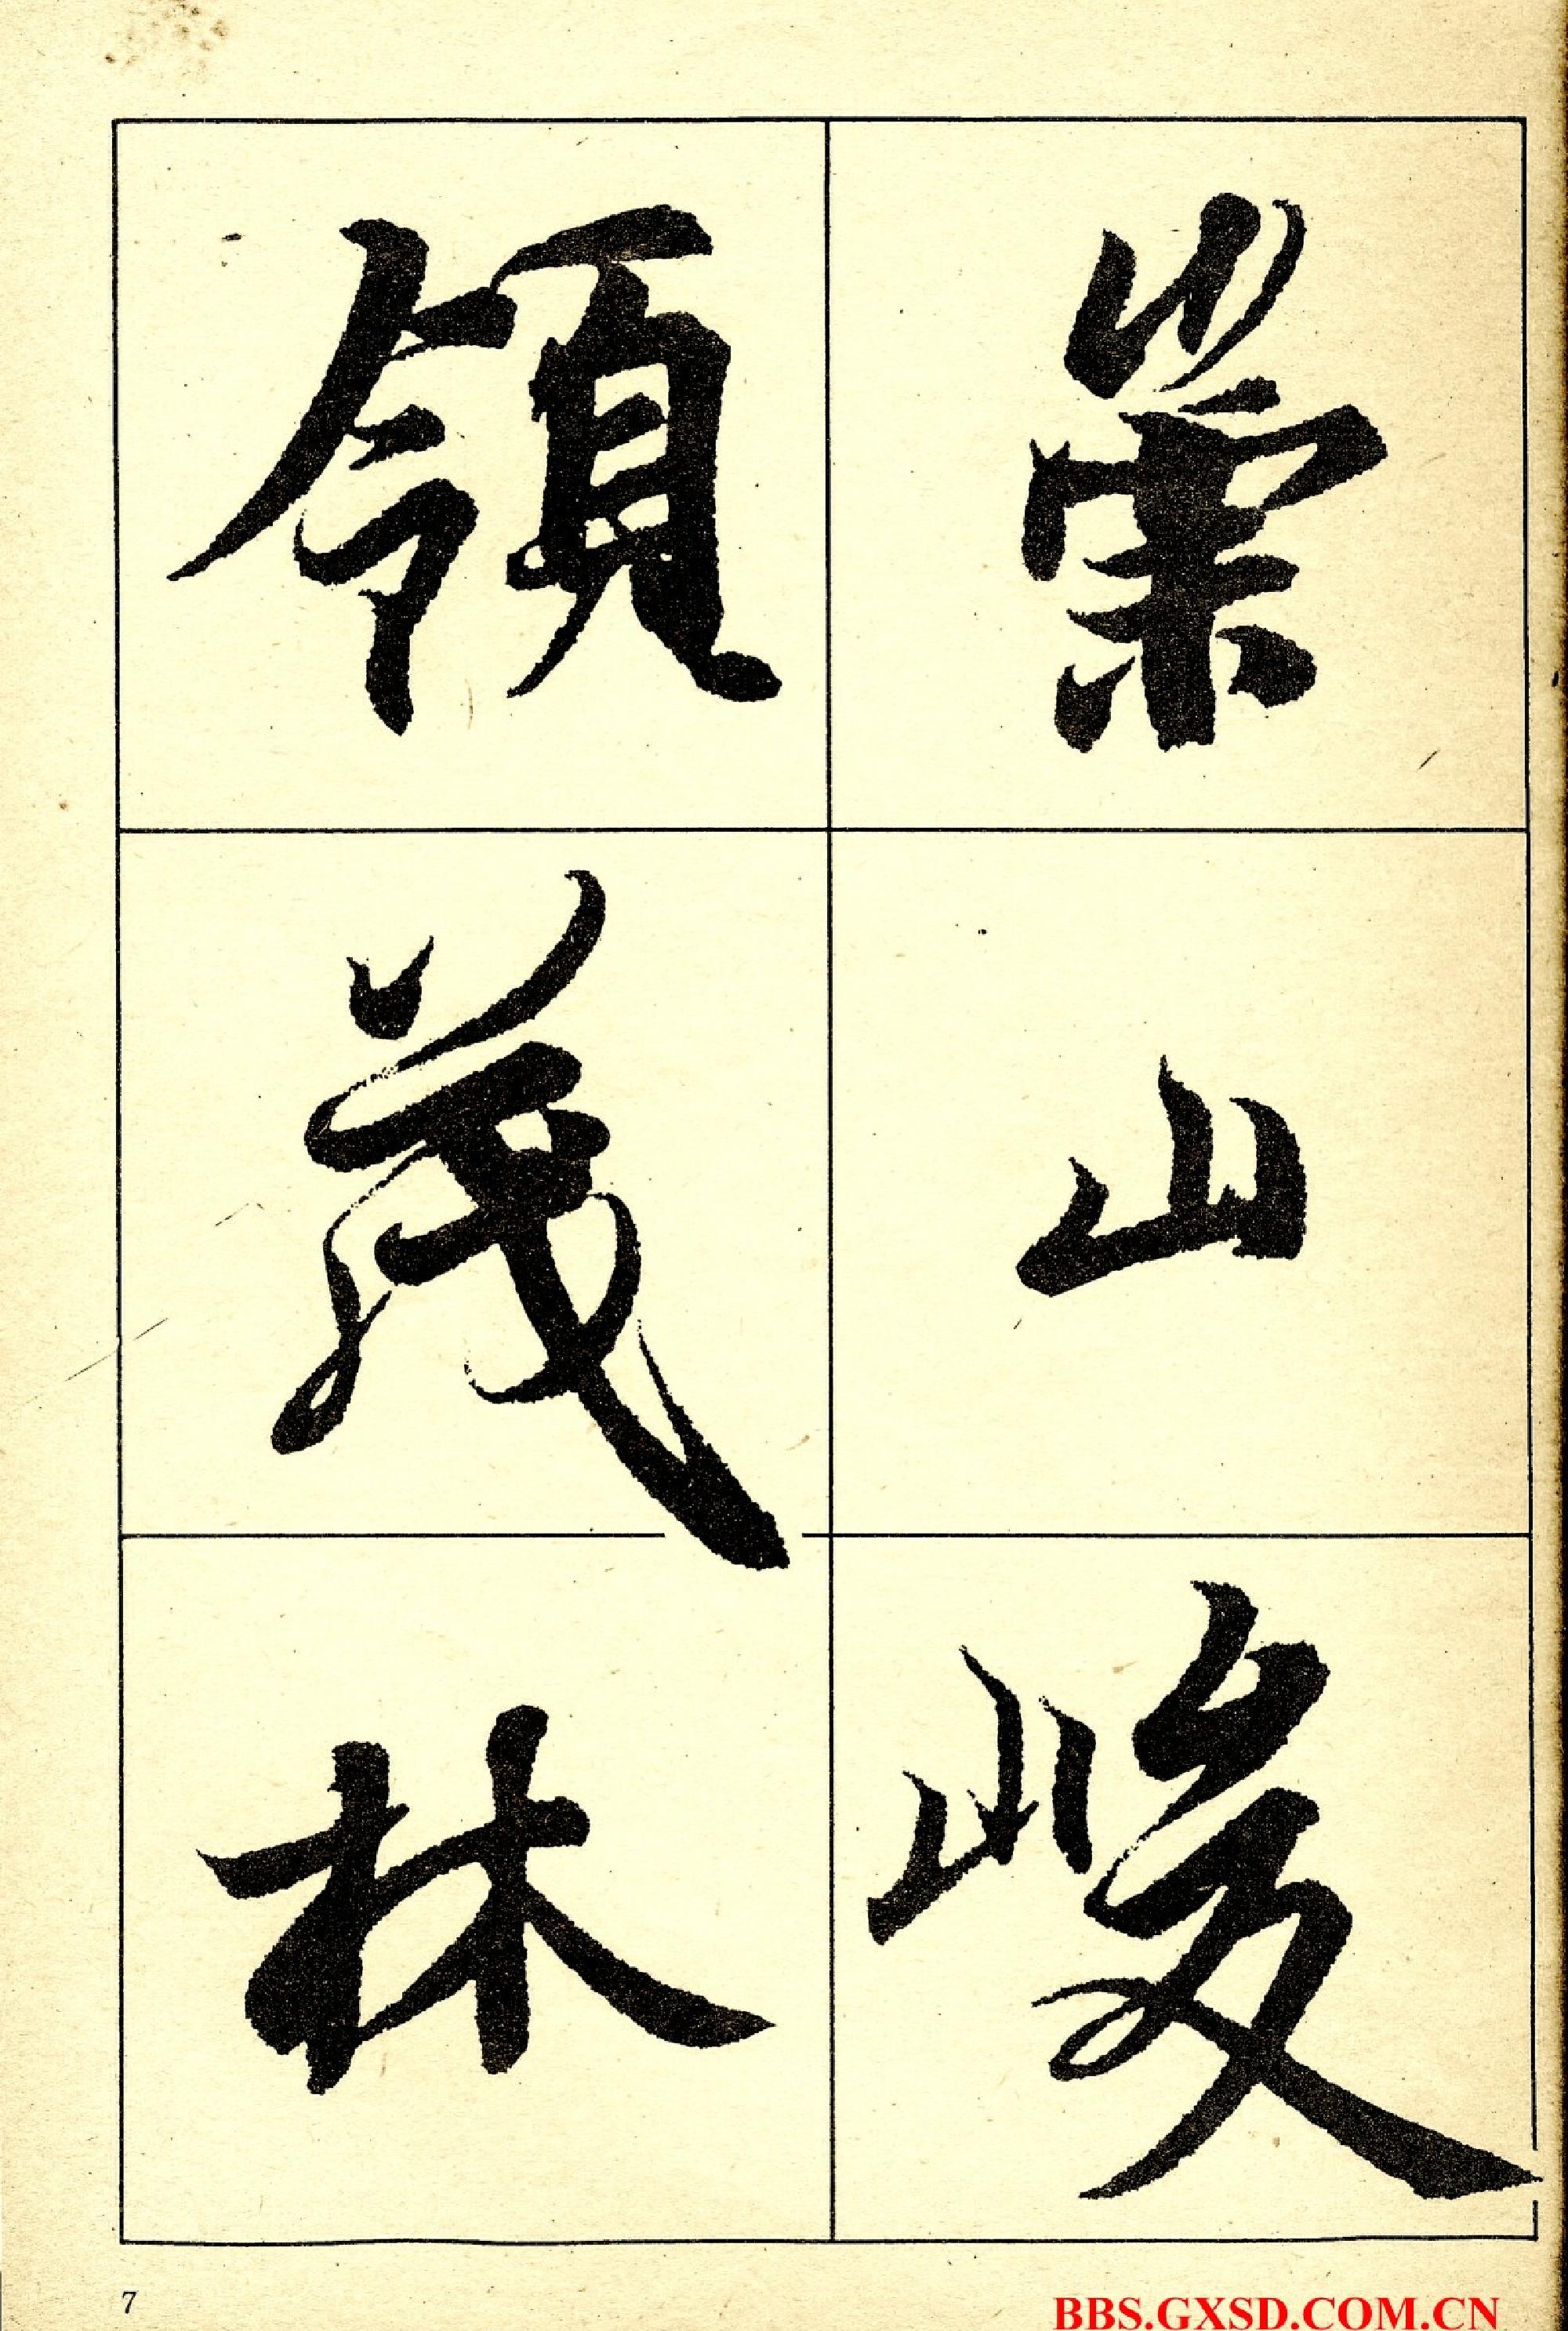 崇山峻
領茂林
7
BBS.GXSD.COM.CN